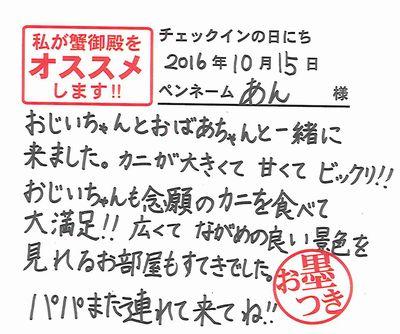 私が蟹御殿を
オススメ
します!!
チェックインの日にち
2016年10月15日
ペンネーム あん 様
おじいちゃんとおばあちゃんと一緒に
来ました。カニが大きくて 甘くて ビックリ!!
おじいちゃんも念願のカニを食べて
大満足!! 広くて ながめの良い景色を
見れるお部屋もすてきでした。
パパまた連れて来てね!!
お墨つき